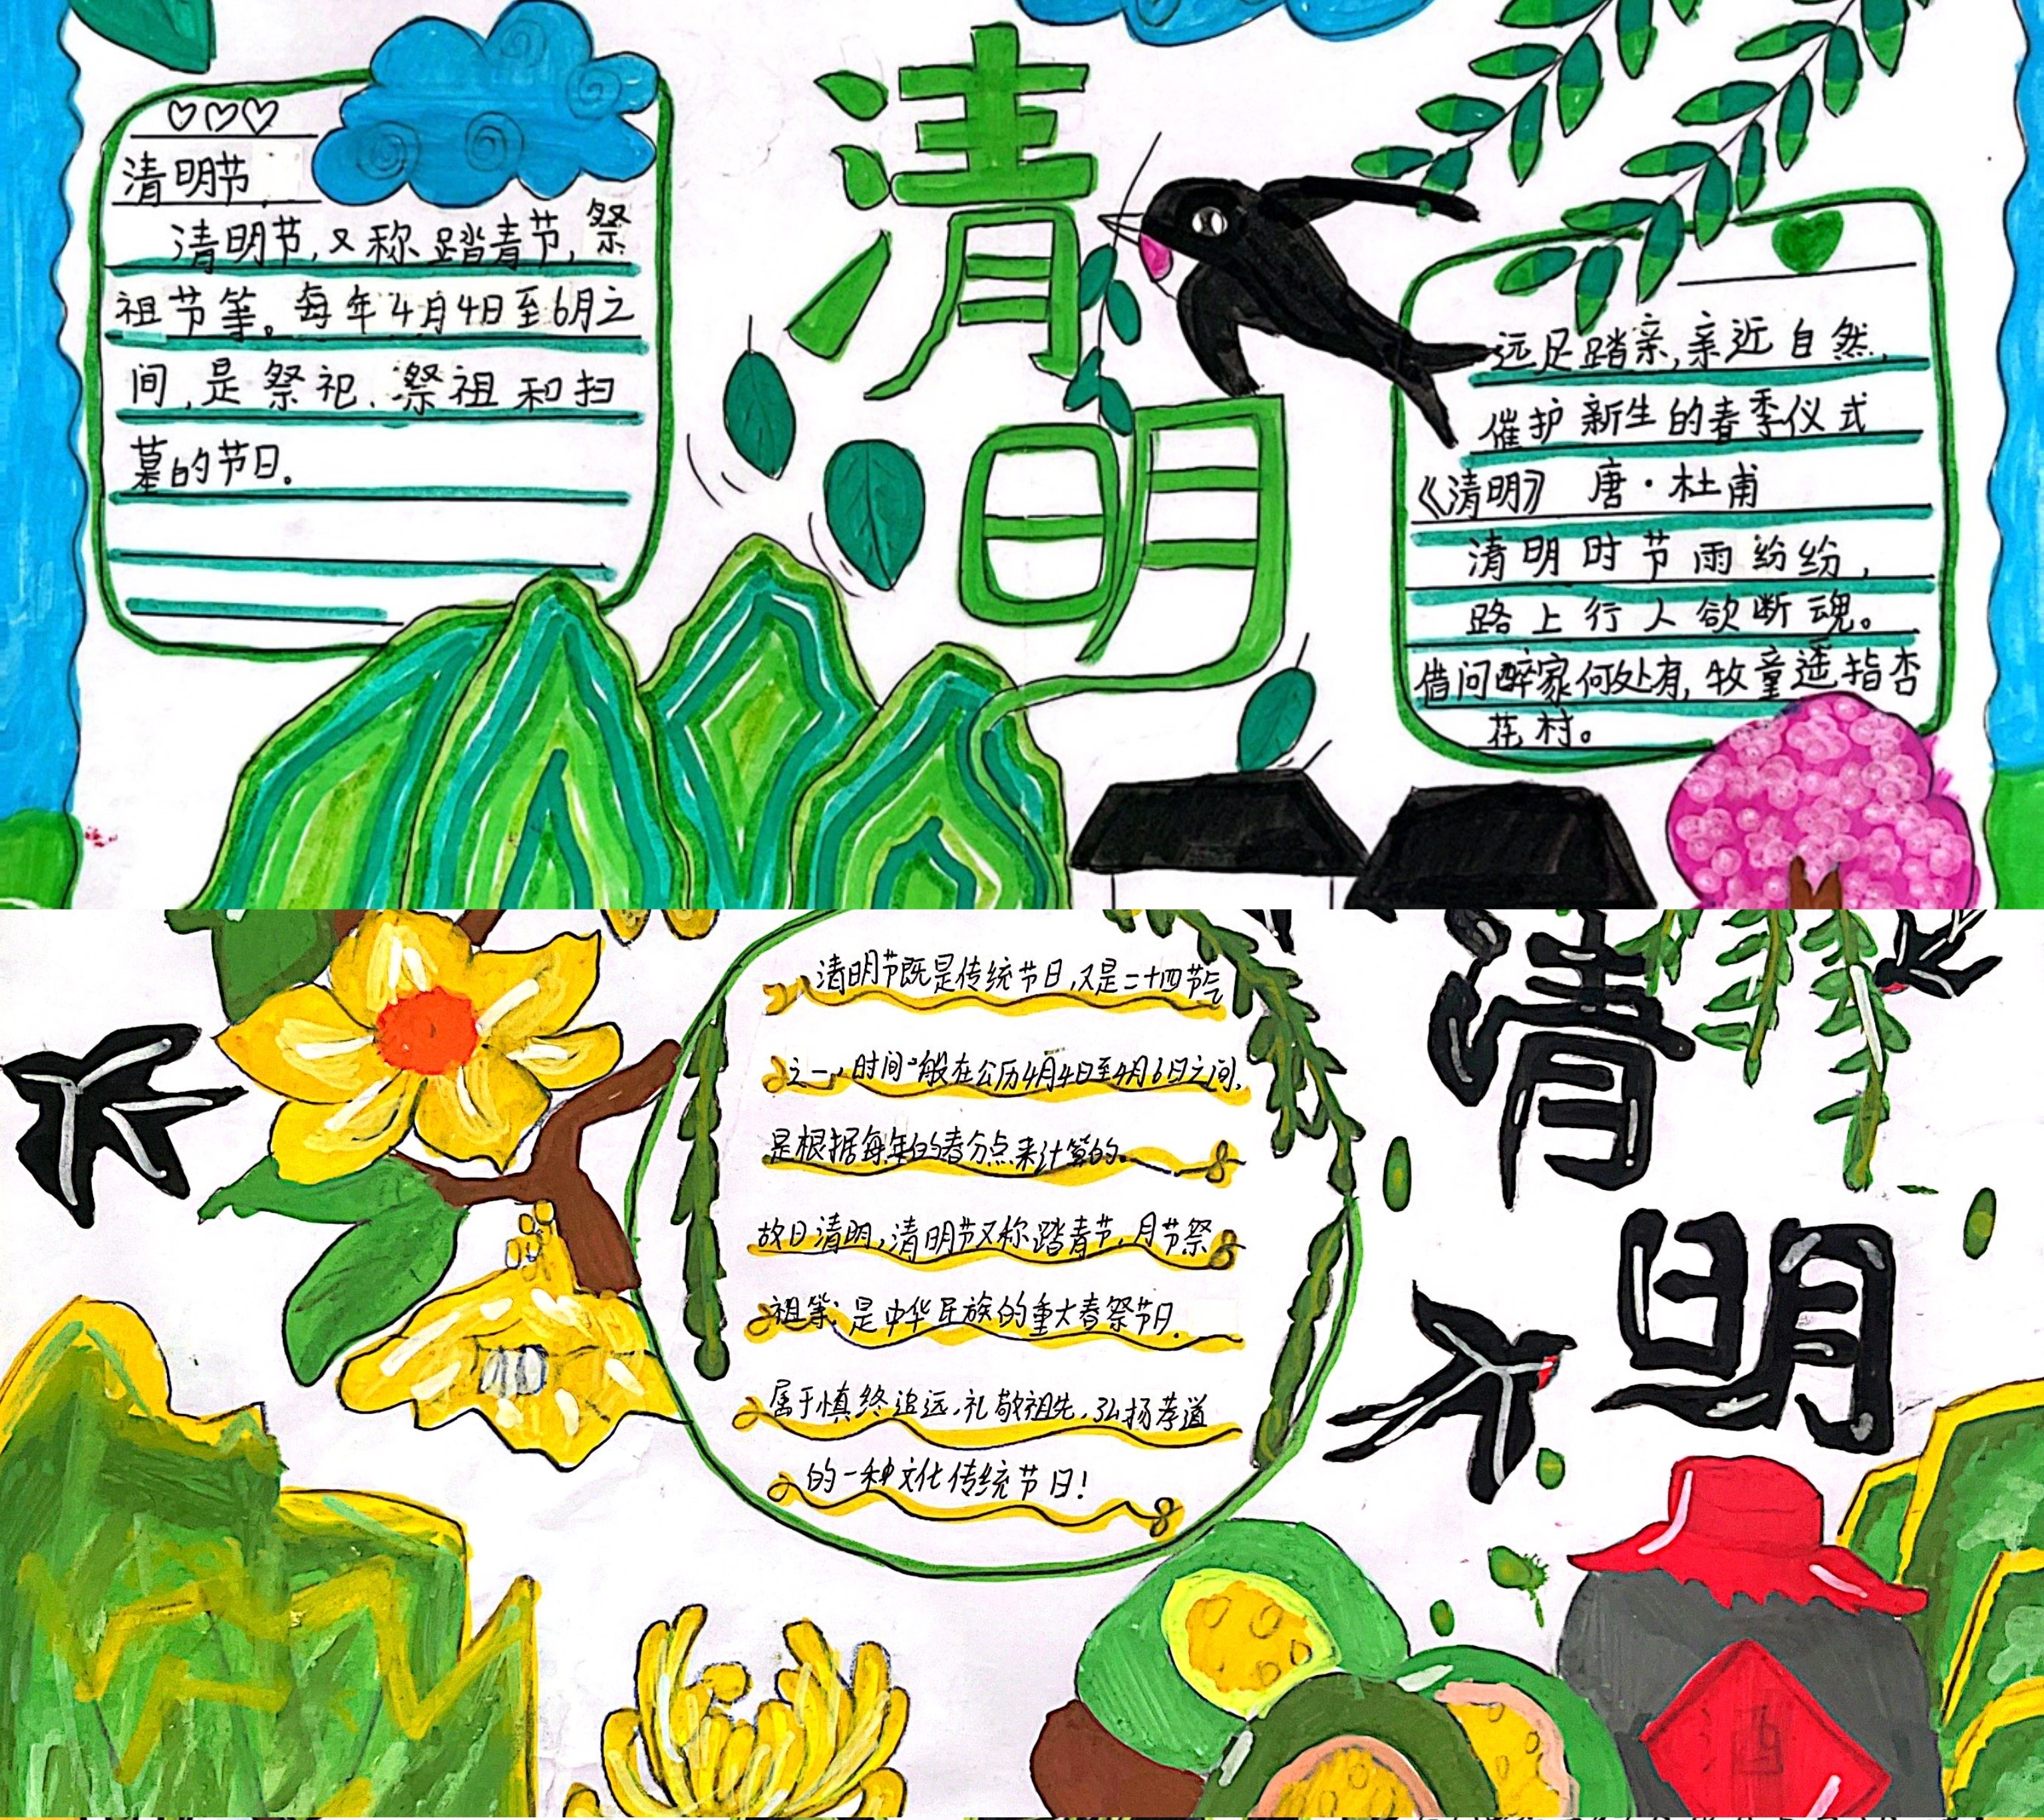 清明
清明节
清明节,又称踏青节,祭
祖节等。每年4月4日至6月之
间,是祭祀、祭祖和扫
墓的节日。
远足踏亲,亲近自然,
催护新生的春季仪式
《清明》 唐·杜甫
清明时节雨纷纷,
路上行人欲断魂。
借问醉家何处有,牧童遥指杏
花村。
清明
清明节既是传统节日,又是二十四节气
之一,时间一般在公历4月4日至4月6日之间,
是根据每年的春分点来计算的.
故日清明,清明节又称踏青节,月节祭
祖等;是中华民族的重大春祭节日.
属于慎终追远,礼敬祖先,弘扬孝道
的一种文化传统节日!
酒